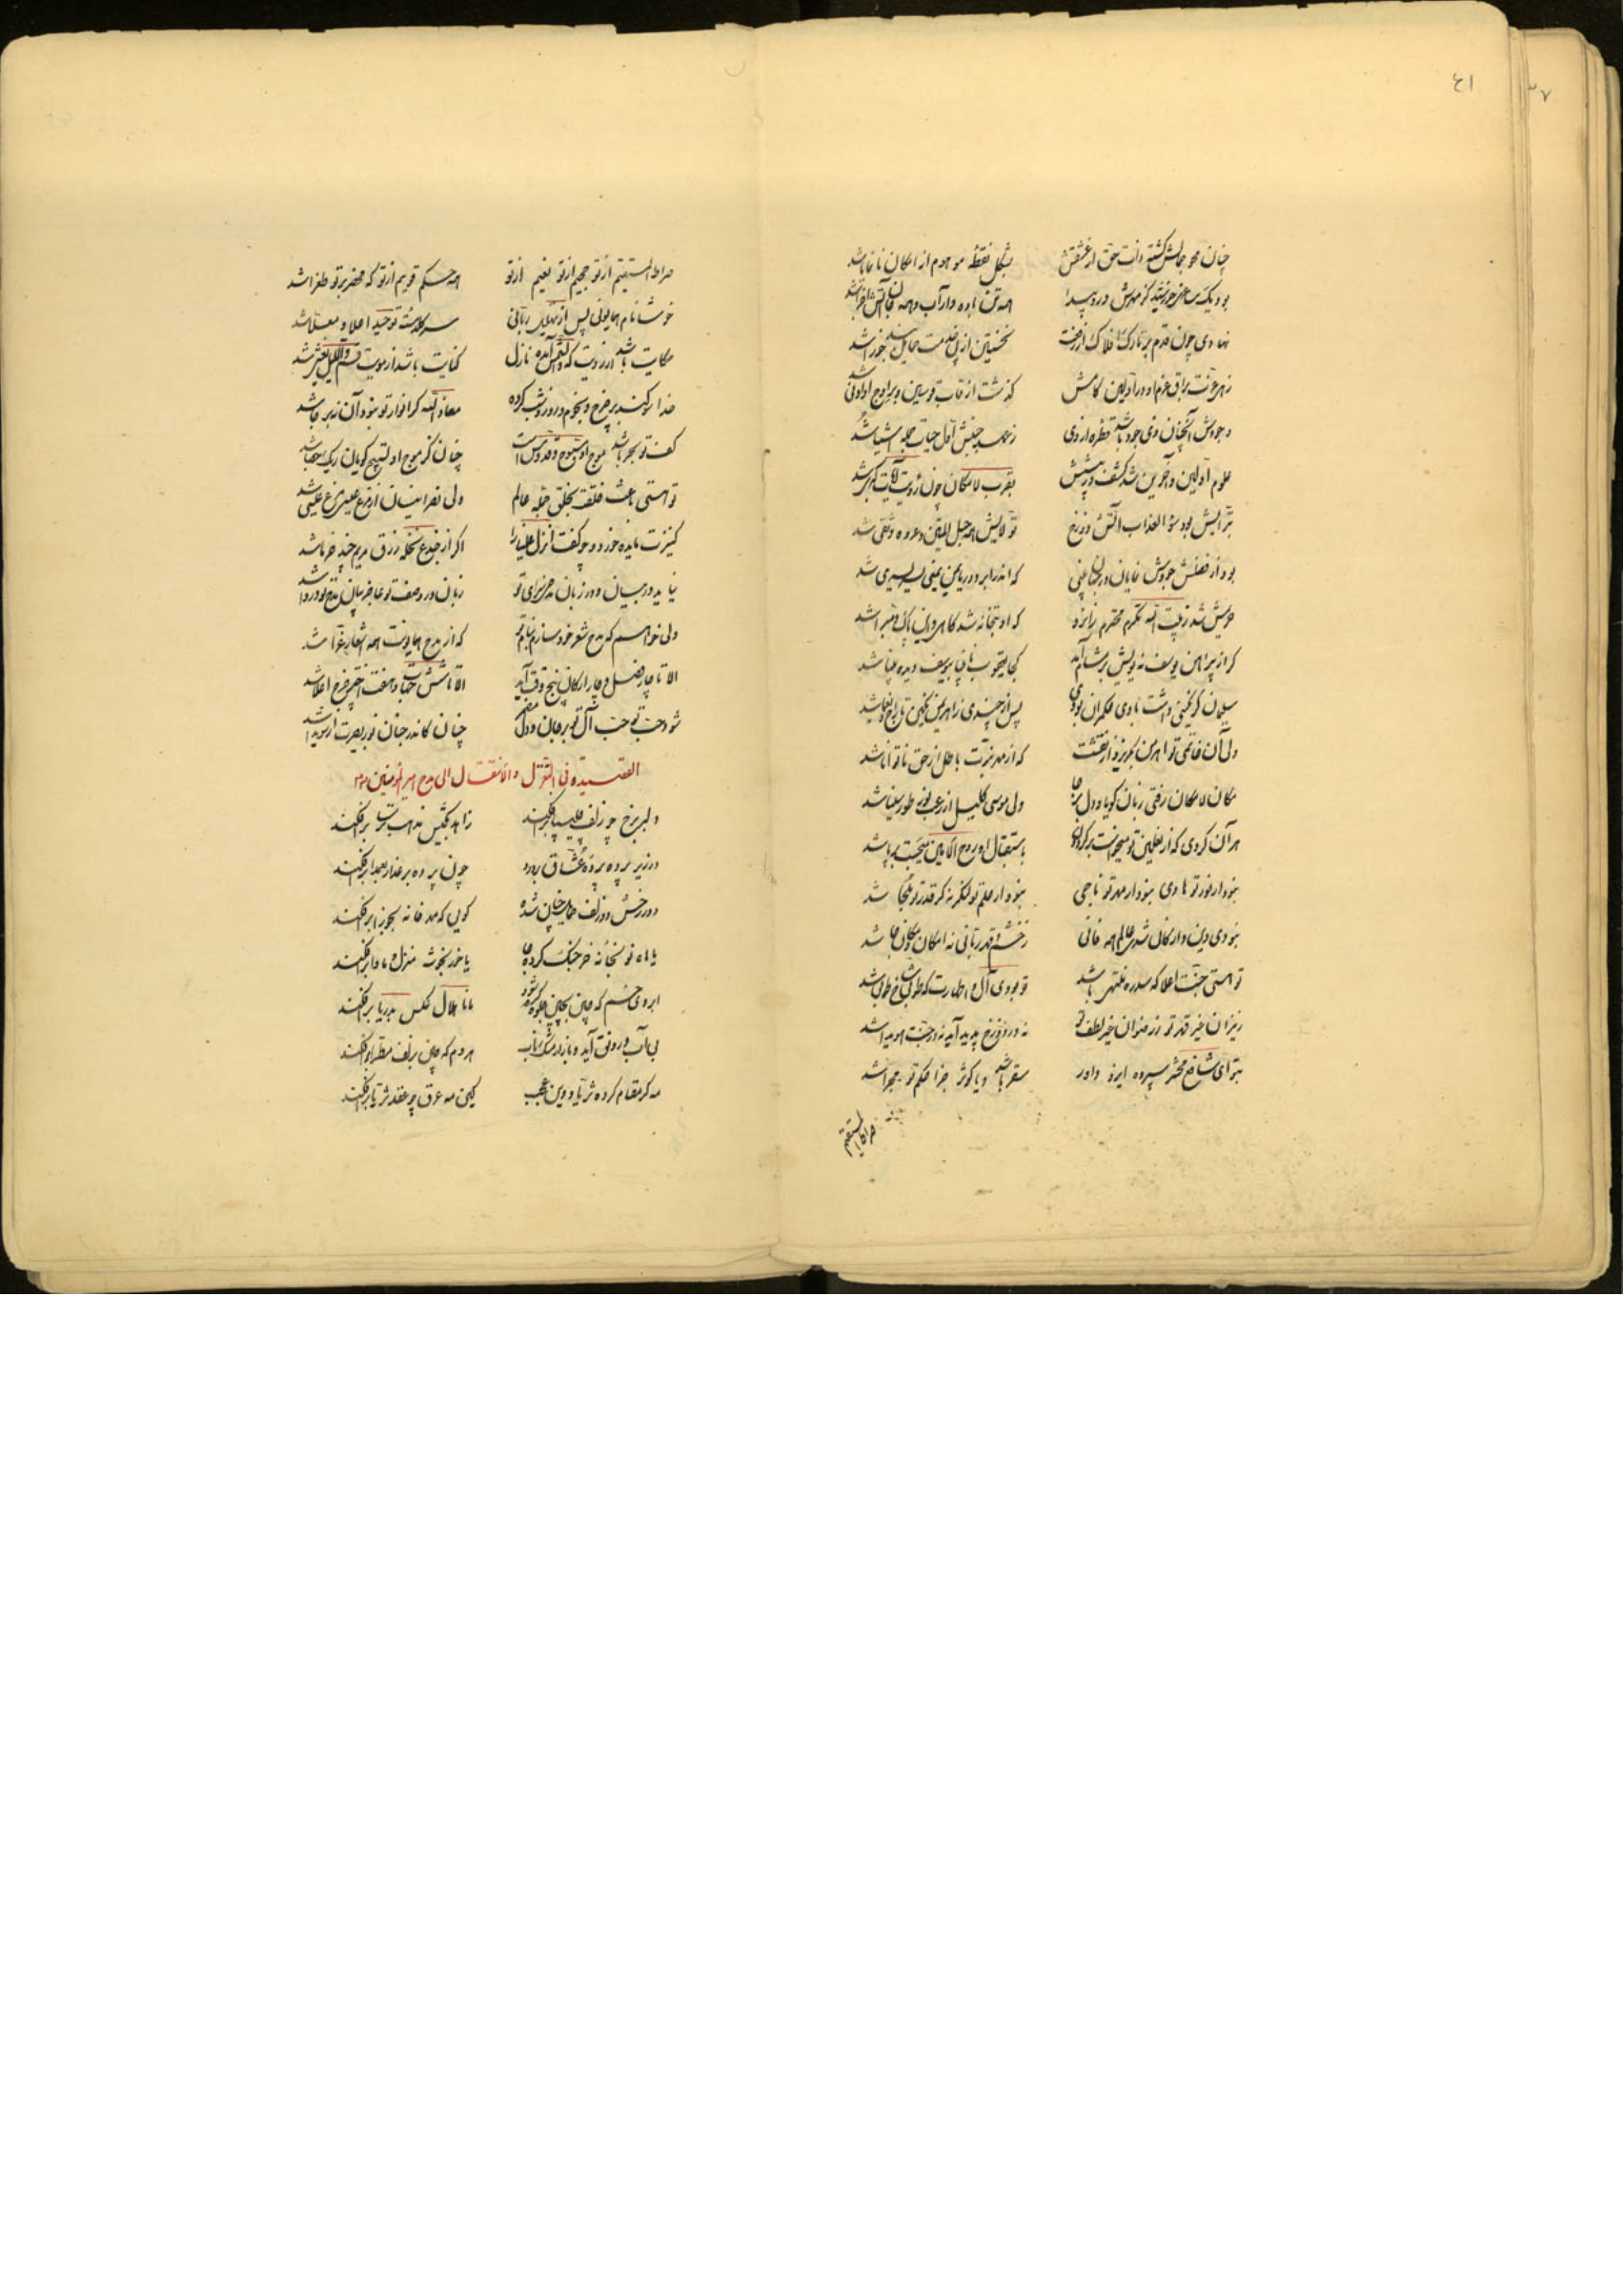 ٤١
٣٧
چنان محو جمالش گشته ذات حق از عشقش بشکل نقطه موهوم از امکان نمایان شد
بود یک ساغر خورشید کز مهرش در و پیدا همه تن باده دار آب و همه
نهادی چون قدم بر تارک افلاک از رفعت نخستین از پی خدمت حمایل بند جوزا شد
زهی عزت براق عزم او در اولین گامش گذشت از قاب قوسین و بر اوج او ادنی شد
وجودش آنچنان وی جود باشد قطره از وی ز مهر جنبش اول حیات جمله اشیا شد
علوم اولین و آخرین شد کشف در پیشش بقرب لامکان چون رؤیت آیات کبری شد
تبرایش بود سوء العذاب آتش دوزخ تولایش همه حبل المتین و عروه وثقی شد
بود از فضلش جودش نمایان در جهان یعنی که اندر ابر و دریا یمن یمنی یسر یسری شد
حریمش شد ز بیت الله مکرم محترم زانرو
گر از پیراهن یوسف نه بویش بر مشام آمد کجا یعقوب نابینا بیوسف دیده بینا شد
سلیمان گر نگینی داشت تا بودی حکمران بودی پس از چندی ز اهریمن نگین تاراج و یغما شد
ولی آن خاتمی تو اهرمن بگریزد از نقشت که از مهر نبوت باطل از حق ناتوانا شد
مکان لامکان رفتی زبان گویا و دل برجا ولی موسی کلیم از رعب نور طور سینا شد
هر آن گردی که از نعلین تو میخواست برگردون باستقبال او روح الامین میجست برپا شد
بنود ار نور تو هادی بنود ار مهر تو ناجی بنود ار حلم تو لنگر نه گر قدر تو ملجا شد
بنودی دین و ارکان شدی عالم همه فانی ز خشم و قهر ربانی نه امکان
تو هستی جنت اعلا که سدره منتهی باشد تو بودی آل و اطهارت که طوبی شاخ طوبی شد
ز نیران غیر قهر تو ز رضوان غیر لطف تو نه در دوزخ پدید آید نه در جنت هویدا شد
بتو ای شافع محشر سپرده ایزد داور سقر باشد و یا کوثر جزا حکم تو مجرا شد
صراط المستقیم
صراط المستقیم از تو جحیم از تو نعیم از تو همه حکم قویم از تو که محضر بر تو طغرا شد
خوشا نام همایونی پس از تهلیل ربانی سر کلمه توحید اعلا و معلا شد
حکایت باشد از رویت که والشمس آمده نازل کنایت باشد از مویت قسم واللیل یغشی شد
خدا سوگند بر چرخ و نجوم و روز و شب کرده معاذ الله گر انوار تو بنود آن نه برجا شد
کفت تو بحر باشد موج او سبوح و قدوس است چنان کز موج او تسبیح گویان ریگ حصبا شد
تو هستی باعث خلقت بخلق جمله عالم ولی نصرانیان از
کنیزت مائده خورد و چو گفت انزل علینا را اگر از جذع نخله رزق مریم چند خرما شد
نیاید در بیان و در زبان مدح سزای تو زبان در وصف تو عاجز بیان مدح تو دروا شد
ولی خواهم که مدح شعر خود سازم بنام تو که از مدح همایونت همه اشعار غرا شد
الا تا چار فصل و چار ارکان پنج وقت آید الا تا شش جهات و هفت اختر چرخ اعلا شد
شود حب تو حب آل تو بر جان و دل چنان کاندر جنان نور بصیرت از سویدا شد
القصیدة فی التغزل و الانتقال الی مدح امیر المؤمنین
دلبر برخ چو زلف چلیپا برافکند زاهد بکیش مذهب ترسا برافکند
در زیر پرده پرده عشاق بر درد چون پرده بر عذار بعمدا برافکند
دور رخش دو زلف حمایل چنان شده گویی که مهد خانه بجوزا برافکند
یا ماه نو بخانه خرچنگ کرده جا یا خور بخوشه منزل و ماوا برافکند
ابروی خم که چین بجبین جلوه گر شود مانا هلال عکس بدریا برافکند
بی آب و رونق آید و بازار مشک ناب هر دم که چین بزلف مطرا برافکند
مه گر مقام کرده ثریا و وین عجب کاین مه عرق چو عقد ثریا برافکند